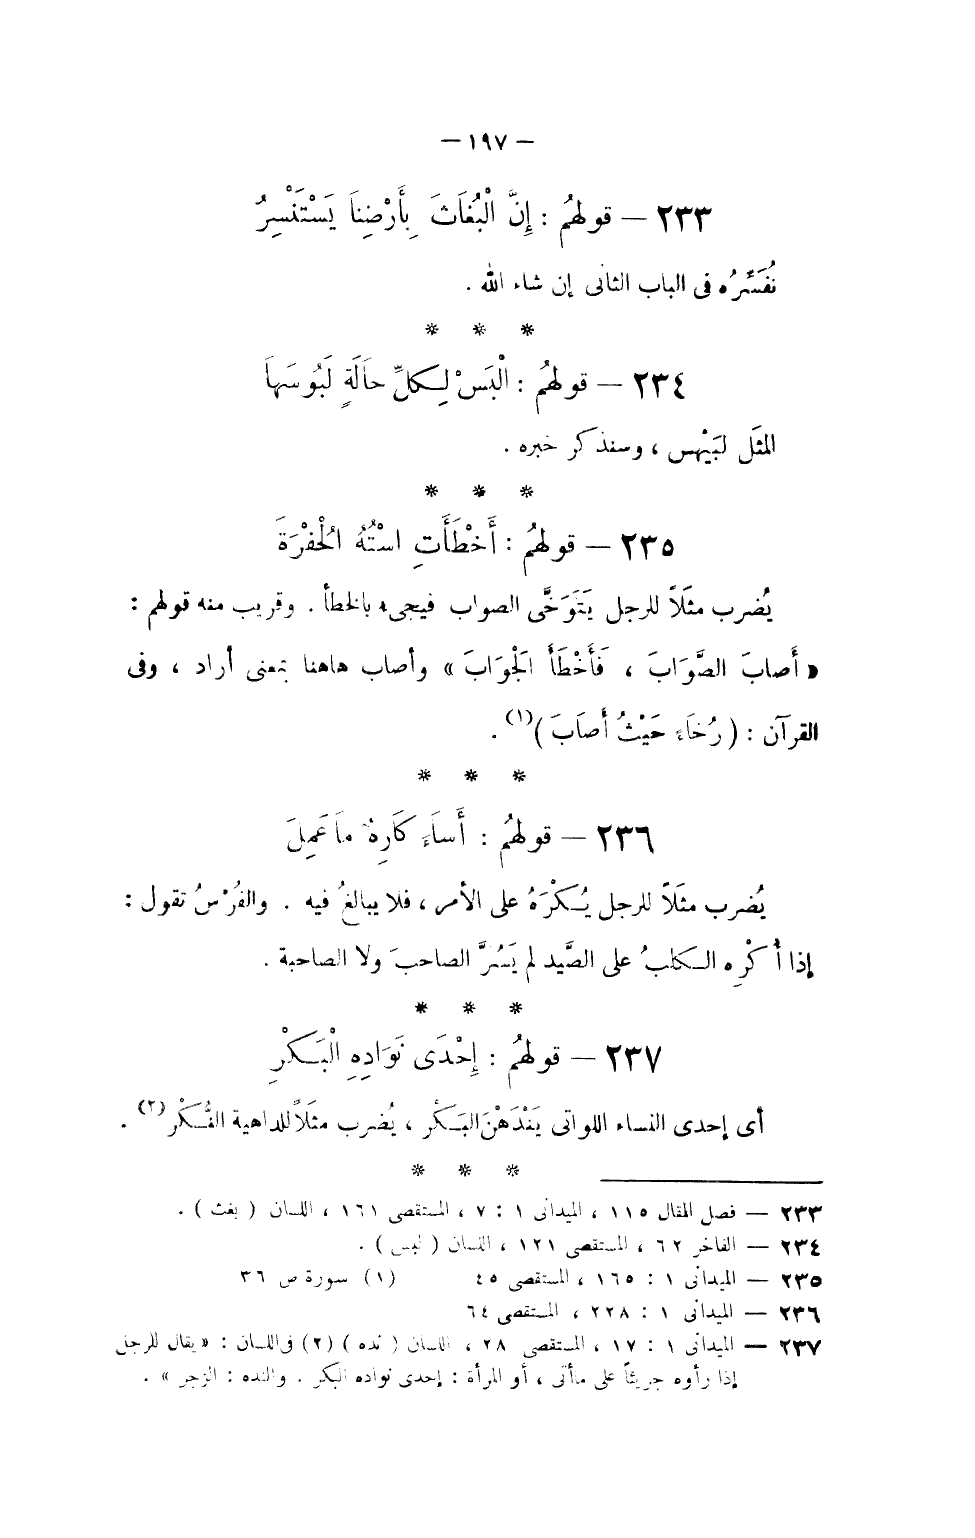 — ١٩٧ —
٢٣٣ — قولهُم : إِنَّ الْبُغَاثَ بِأَرْضِنَا يَسْتَنْسِرُ
نُفَسِّرُه فى الباب الثانى إن شاء الله .
* * *
٢٣٤ — قولهُم : الْبَسْ لِكلِّ حَالَةٍ لَبُوسَهَا
المثَل لبَيْهس ، وسنذكر خبره .
* * *
٢٣٥ — قولهُم : أَخْطَأَتِ اسْتُهُ الْحُفْرَةَ
يُضرب مثَلاً للرجل يَتَوَخَّى الصواب فيجىء بالخطأ . وقريب منه قولهم :
« أَصابَ الصَّوَابَ ، فَأَخْطَأَ الْجوَابَ » وأصاب هاهنا بمعنى أراد ، وفى
القرآن : ( رُخَاءً حَيْثُ أَصَابَ )(١) .
* * *
٢٣٦ — قولهُم : أَسَاءَ كَارِهٌ مَا عَمِلَ
يُضرب مثَلاً للرجل يُكْرَهُ على الأمر ، فلا يبالغُ فيه . والفُرْسُ تقول :
إذا أُكْرِه الكلبُ على الصَّيد لم يَسُرَّ الصاحبَ ولا الصاحبة .
* * *
٢٣٧ — قولهُم : إِحْدَى نَوَادِهِ الْبَكْرِ
أى إحدى النساء اللواتى يَنْدَهْنَ البَكْر ، يُضرب مثَلاً للداهية النُّكْر(٢) .
* * *
٢٣٣ — فصل المقال ١١٥ ، الميدانى ١ : ٧ ، المستقصى ١٦١ ، اللسان ( بغث ) .
٢٣٤ — الفاخر ٦٢ ، المستقصى ١٢١ ، اللسان ( لبس ) .
٢٣٥ — الميدانى ١ : ١٦٥ ، المستقصى ٤٥ (١) سورة ص ٣٦
٢٣٦ — الميدانى ١ : ٢٢٨ ، المستقصى ٦٤
٢٣٧ — الميدانى ١ : ١٧ ، المستقصى ٢٨ ، اللسان ( نده ) (٢) فى اللسان : « يقال للرجل
إذا رأوه جريئاً على ما أتى ، أو المرأة : إحدى نواده البكر . والنده : الزجر » .